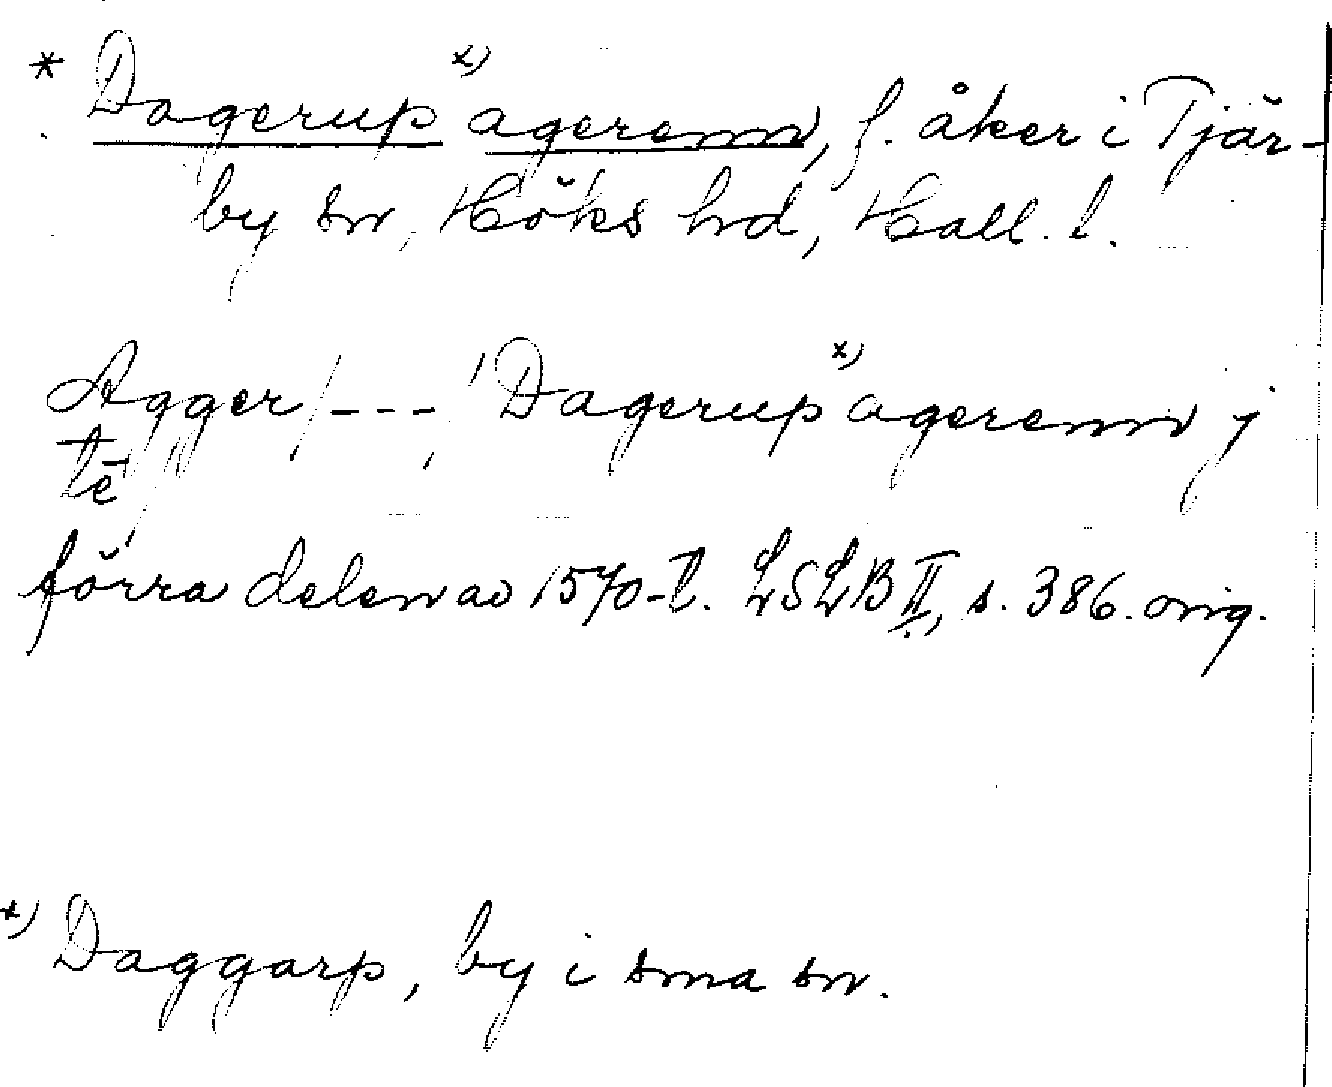 * Dagerup x) agerenn, f. åker i Tjär-
by sn, Höks hd, Hall. l.
Agger /---,/ Dagerup x) agerenn j
té
förra delen av 1570-t. LSLB II, s. 386. orig.
x) Daggarp, by i sma sn.